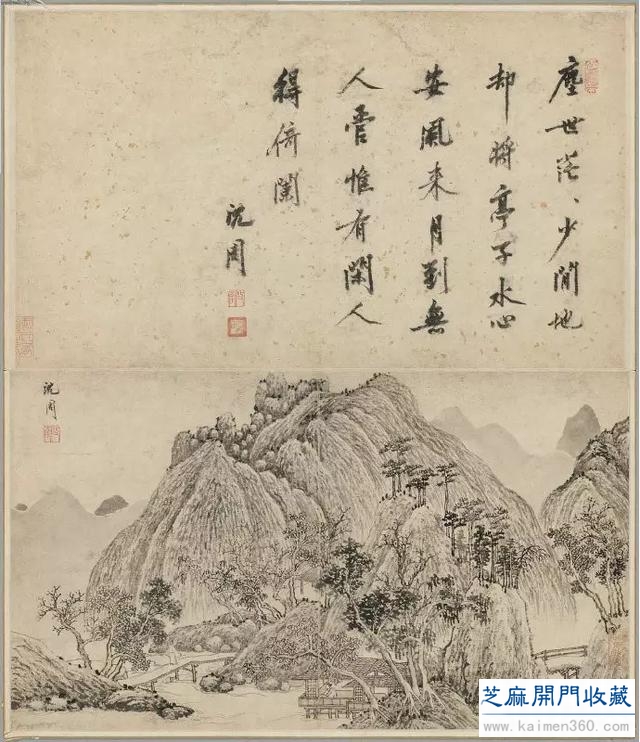 塵世茫、少閒地
却將亭子水心
安風来月到無
人管惟有閑人
得倚闌
沈周
沈周
芝麻開門收藏
www.kaimen360.com